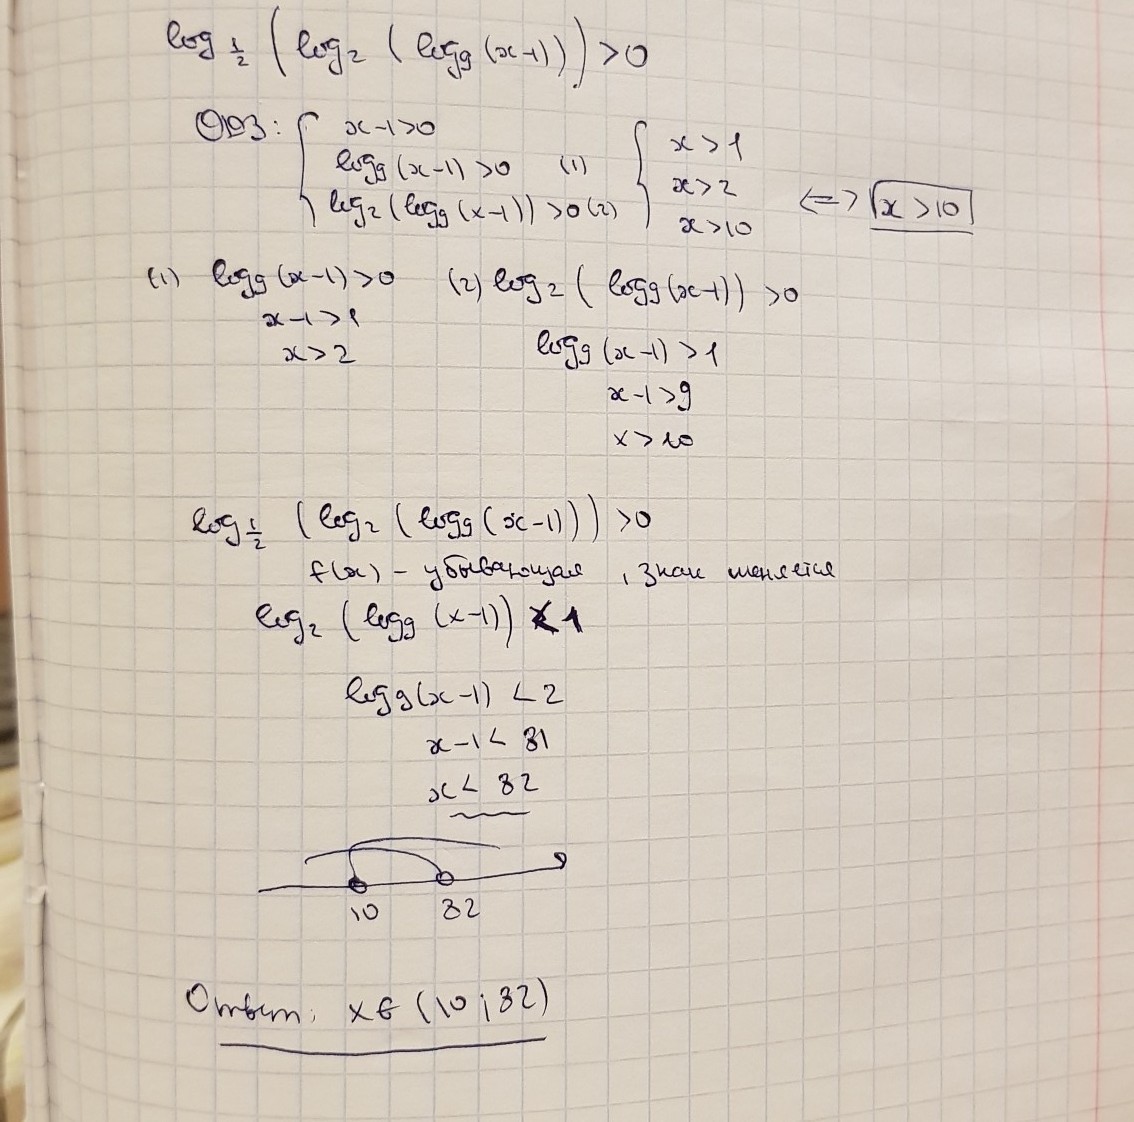 log_{1/2} (log_2 (log_9 (x-1))) > 0
ОДЗ: { x-1>0
log_9 (x-1) > 0 (1)
log_2 (log_9 (x-1)) > 0 (2)
{ x > 1
x > 2
x > 10
<=> x > 10
(1) log_9 (x-1) > 0
x-1 > 1
x > 2
(2) log_2 (log_9 (x-1)) > 0
log_9 (x-1) > 1
x-1 > 9
x > 10
log_{1/2} (log_2 (log_9 (x-1))) > 0
f(x) - убывающая, знак меняется
log_2 (log_9 (x-1)) < 1
log_9 (x-1) < 2
x-1 < 81
x < 82
10 82
Ответ: x∈(10;82)